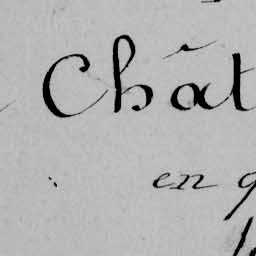 Chât
en q